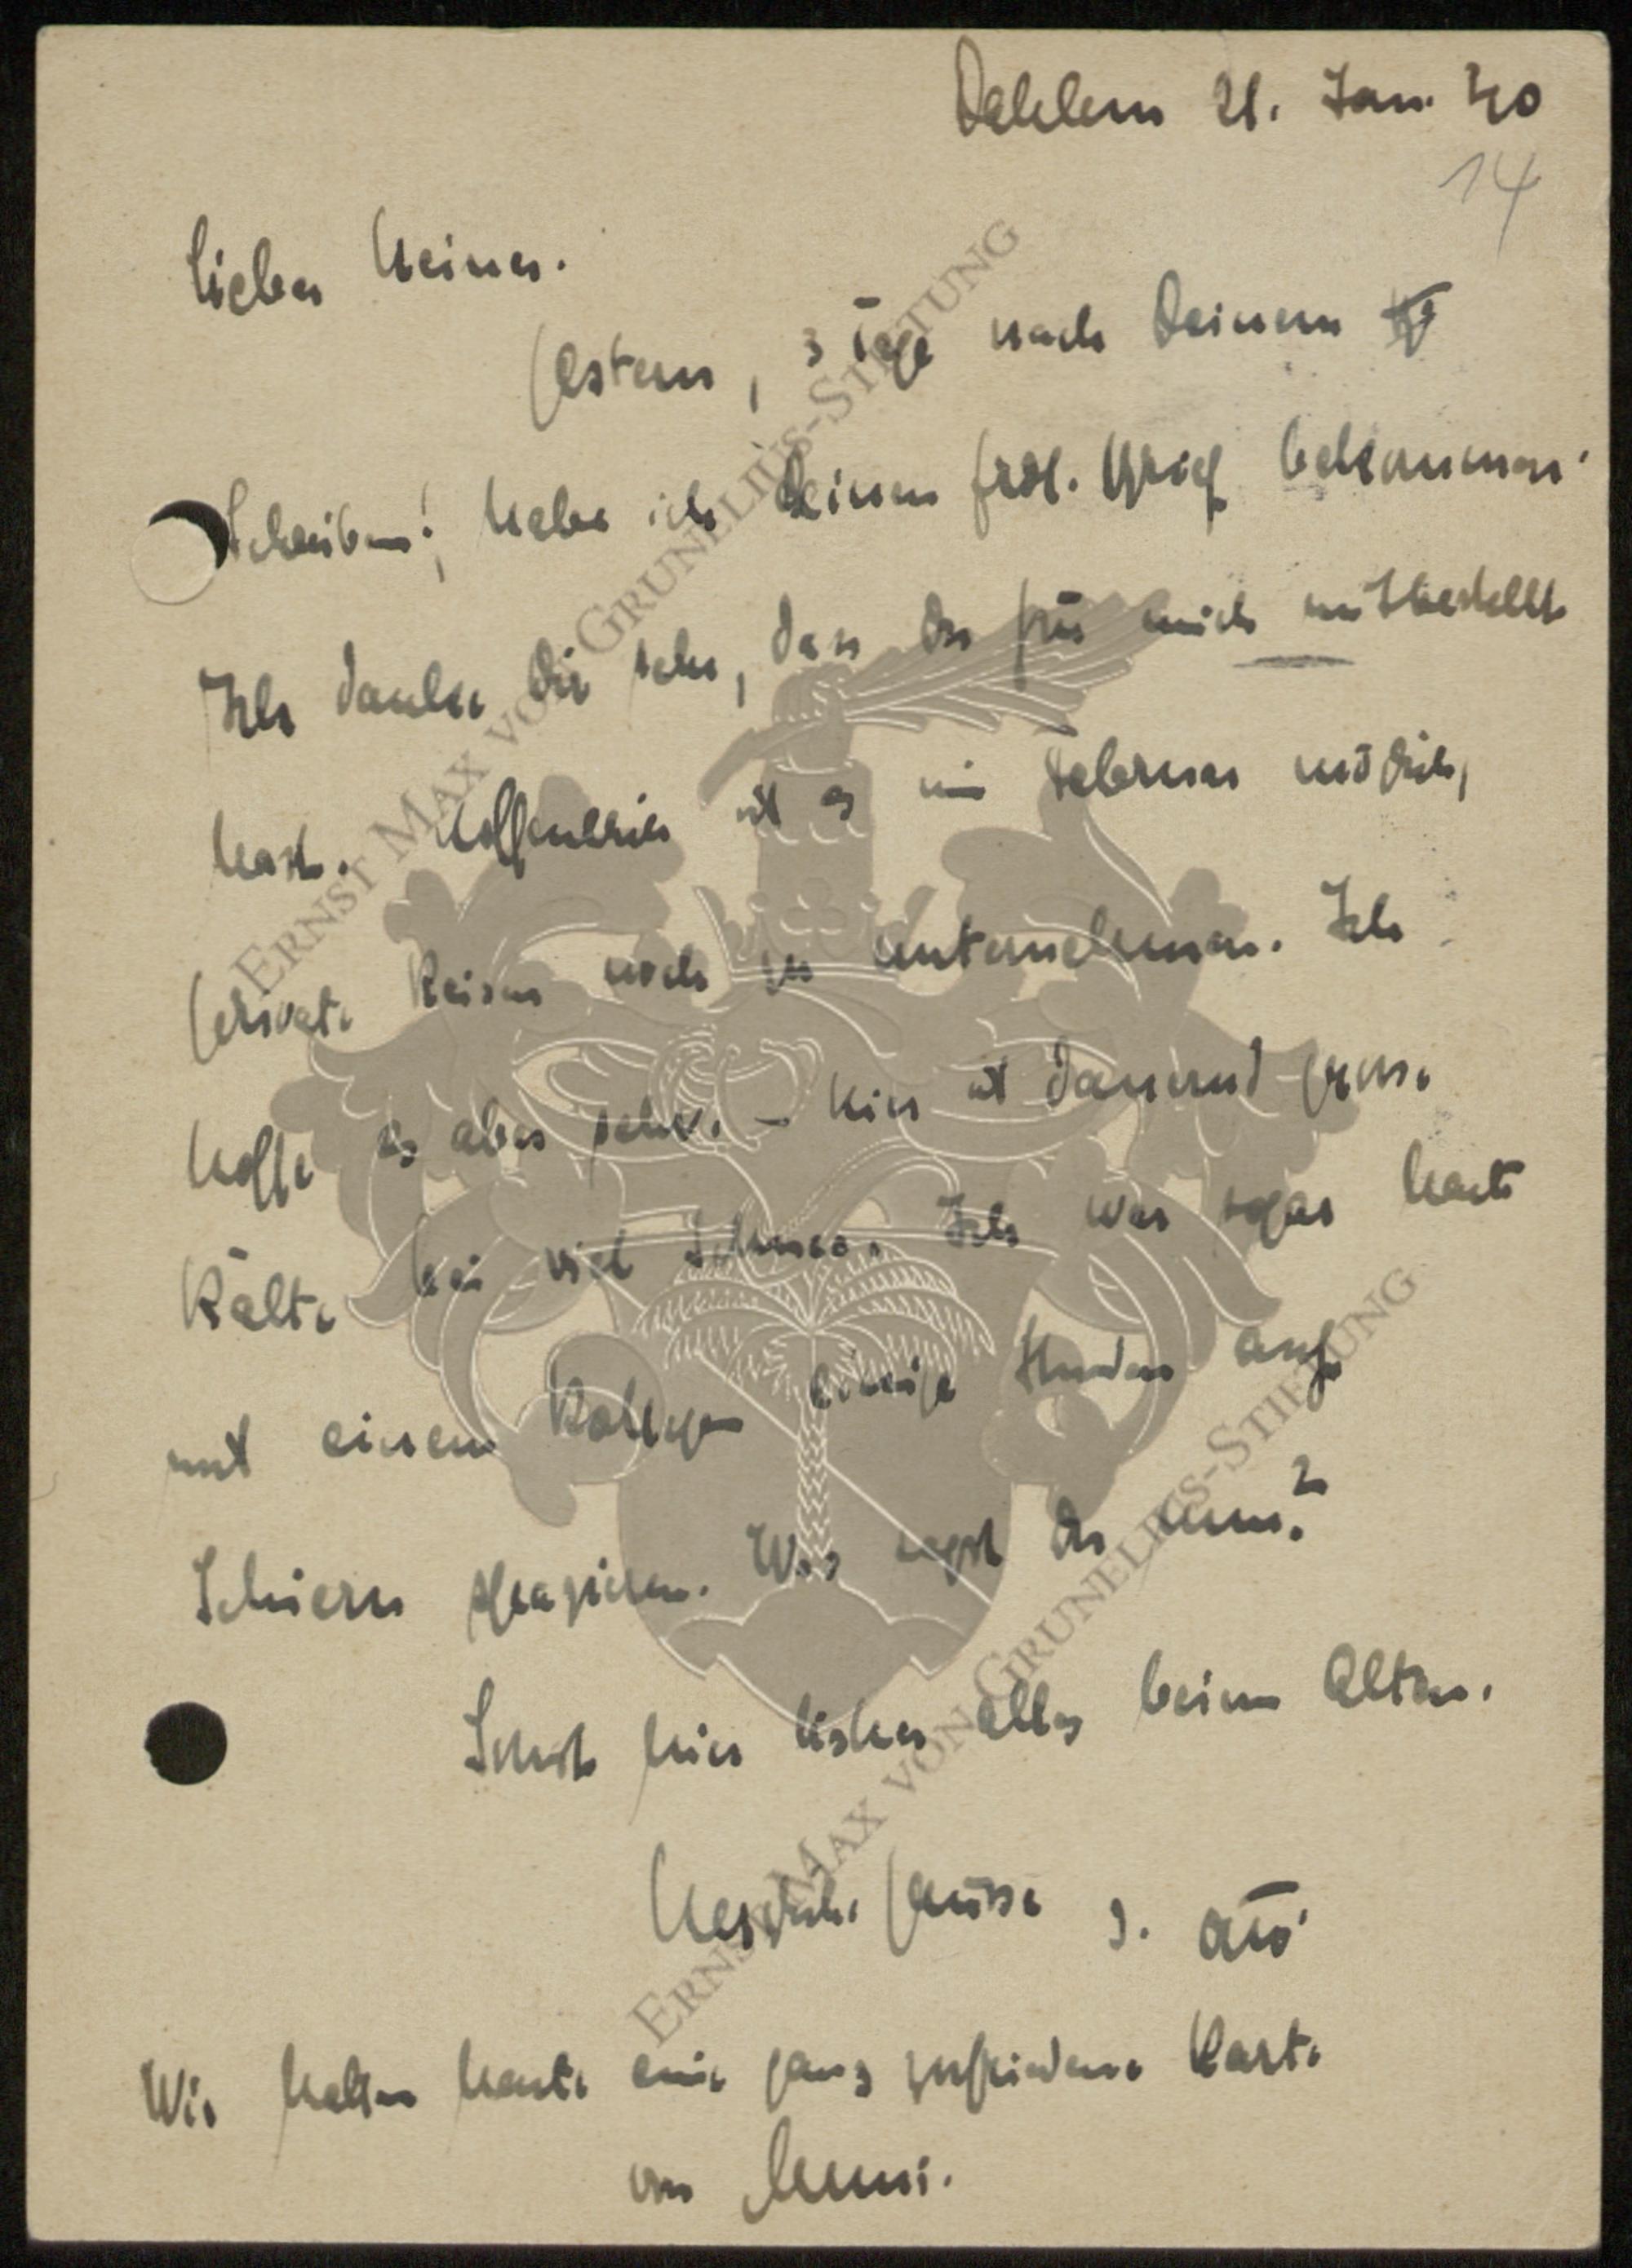 Dahlem 21. Jan. 40
14
Lieber Heiner.
Gestern, 3 Tage nach Deinem
Schreiben!, habe ich Deinen frdl. Brief bekommen.
Ich danke Dir sehr, dass Du für mich mitbestellt
hast. Hoffentlich ist es im Februar möglich,
private Reisen noch zu unternehmen. Ich
hoffe es aber sehr. – Hier ist dauernd grosse
Kälte bei viel Schnee. Ich war sogar heute
mit einem Kollegen einige Stunden auf
Schiern spazieren. Was sagst Du nun?
Sonst hier bisher alles beim Alten.
Herzliche Grüsse D. Otto
Wir hatten heute eine ganz zufriedene Karte
von
ERNST MAX VON GRUNELIUS-STIFTUNG
ERNST MAX VON GRUNELIUS-STIFTUNG